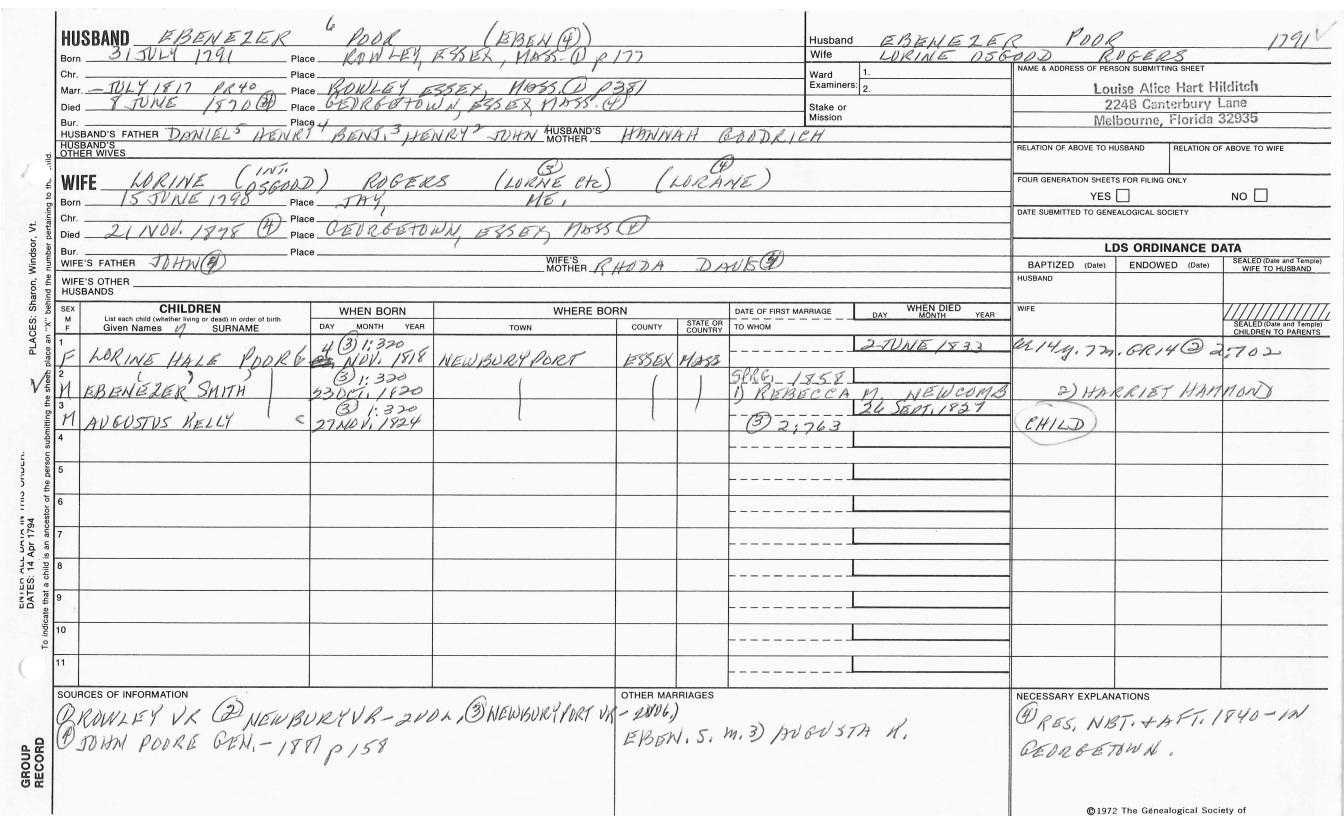 HUSBAND EBENEZER 6 POOR (EBEN ④)
Born 31 JULY 1791 Place ROWLEY, ESSEX, MASS. ① p 177
Chr. Place
Marr. – JULY 1817 PR40 Place ROWLEY ESSEX, MASS. ① p 381
Died 8 JUNE 1870 ④ Place GEORGETOWN, ESSEX MASS. ④
Bur. Place
HUSBAND'S FATHER DANIEL 5 HENRY 4 BENJ. 3 HENRY 2 JOHN 1 HUSBAND'S MOTHER HANNAH GOODRICH
HUSBAND'S OTHER WIVES
WIFE LORINE (INT. OSGOOD) ROGERS (LORNE etc) ③ (LORANE) ④
Born 15 JUNE 1798 Place JAY, ME,
Chr. Place
Died 21 NOV. 1878 ④ Place GEORGETOWN, ESSEX, MASS ④
Bur. Place
WIFE'S FATHER JOHN ④ WIFE'S MOTHER RHODA ④
WIFE'S OTHER HUSBANDS
Husband EBENEZER POOR 1791
Wife LORINE OSGOOD ROGERS
Ward Examiners: 1.
2.
Stake or Mission
NAME & ADDRESS OF PERSON SUBMITTING SHEET
Louise Alice Hart Hilditch
2248 Canterbury Lane
Melbourne, Florida 32935
RELATION OF ABOVE TO HUSBAND RELATION OF ABOVE TO WIFE
FOUR GENERATION SHEETS FOR FILING ONLY
YES NO
DATE SUBMITTED TO GENEALOGICAL SOCIETY
LDS ORDINANCE DATA
BAPTIZED (Date) ENDOWED (Date) SEALED (Date and Temple) WIFE TO HUSBAND
HUSBAND
WIFE
SEALED (Date and Temple) CHILDREN TO PARENTS
SEX M F CHILDREN WHEN BORN WHERE BORN DATE OF FIRST MARRIAGE WHEN DIED
List each child (whether living or dead) in order of birth
Given Names SURNAME DAY MONTH YEAR TOWN COUNTY STATE OR COUNTRY TO WHOM DAY MONTH YEAR
1 F LORINE HALE POOR 6 4 ③ 1:320 NOV. 1818 NEWBURYPORT ESSEX MASS 2 JUNE 1833 14y. 7m. GR14 ② 2:702
2 M EBENEZER SMITH ③ 1:320 23 OCT. 1820 SPRG. 1858 1) REBECCA M. NEWCOMB 2) HARRIET HAMMOND
3 M AUGUSTUS KELLY ③ 1:320 27 NOV. 1824 26 SEPT. 1827 ③ 2:763 CHILD
4
5
6
7
8
9
10
11
SOURCES OF INFORMATION
① ROWLEY VR ② NEWBURY VR – 2 VOL, ③ NEWBURYPORT VR –
④ JOHN POORE GEN. – 1881 p 158
OTHER MARRIAGES
EBEN. S. m. 3) AUGUSTA K.
NECESSARY EXPLANATIONS
④ RES. NBT. + AFT. 1840 – IN
GEORGETOWN.
©1972 The Genealogical Society of
PLACES: Sharon, Windsor, Vt.
ENTER ALL DATA IN THIS ORDER:
DATES: 14 Apr 1794
To indicate that a child is an ancestor of the person submitting the sheet, place an "X" behind the number pertaining to th
GROUP RECORD